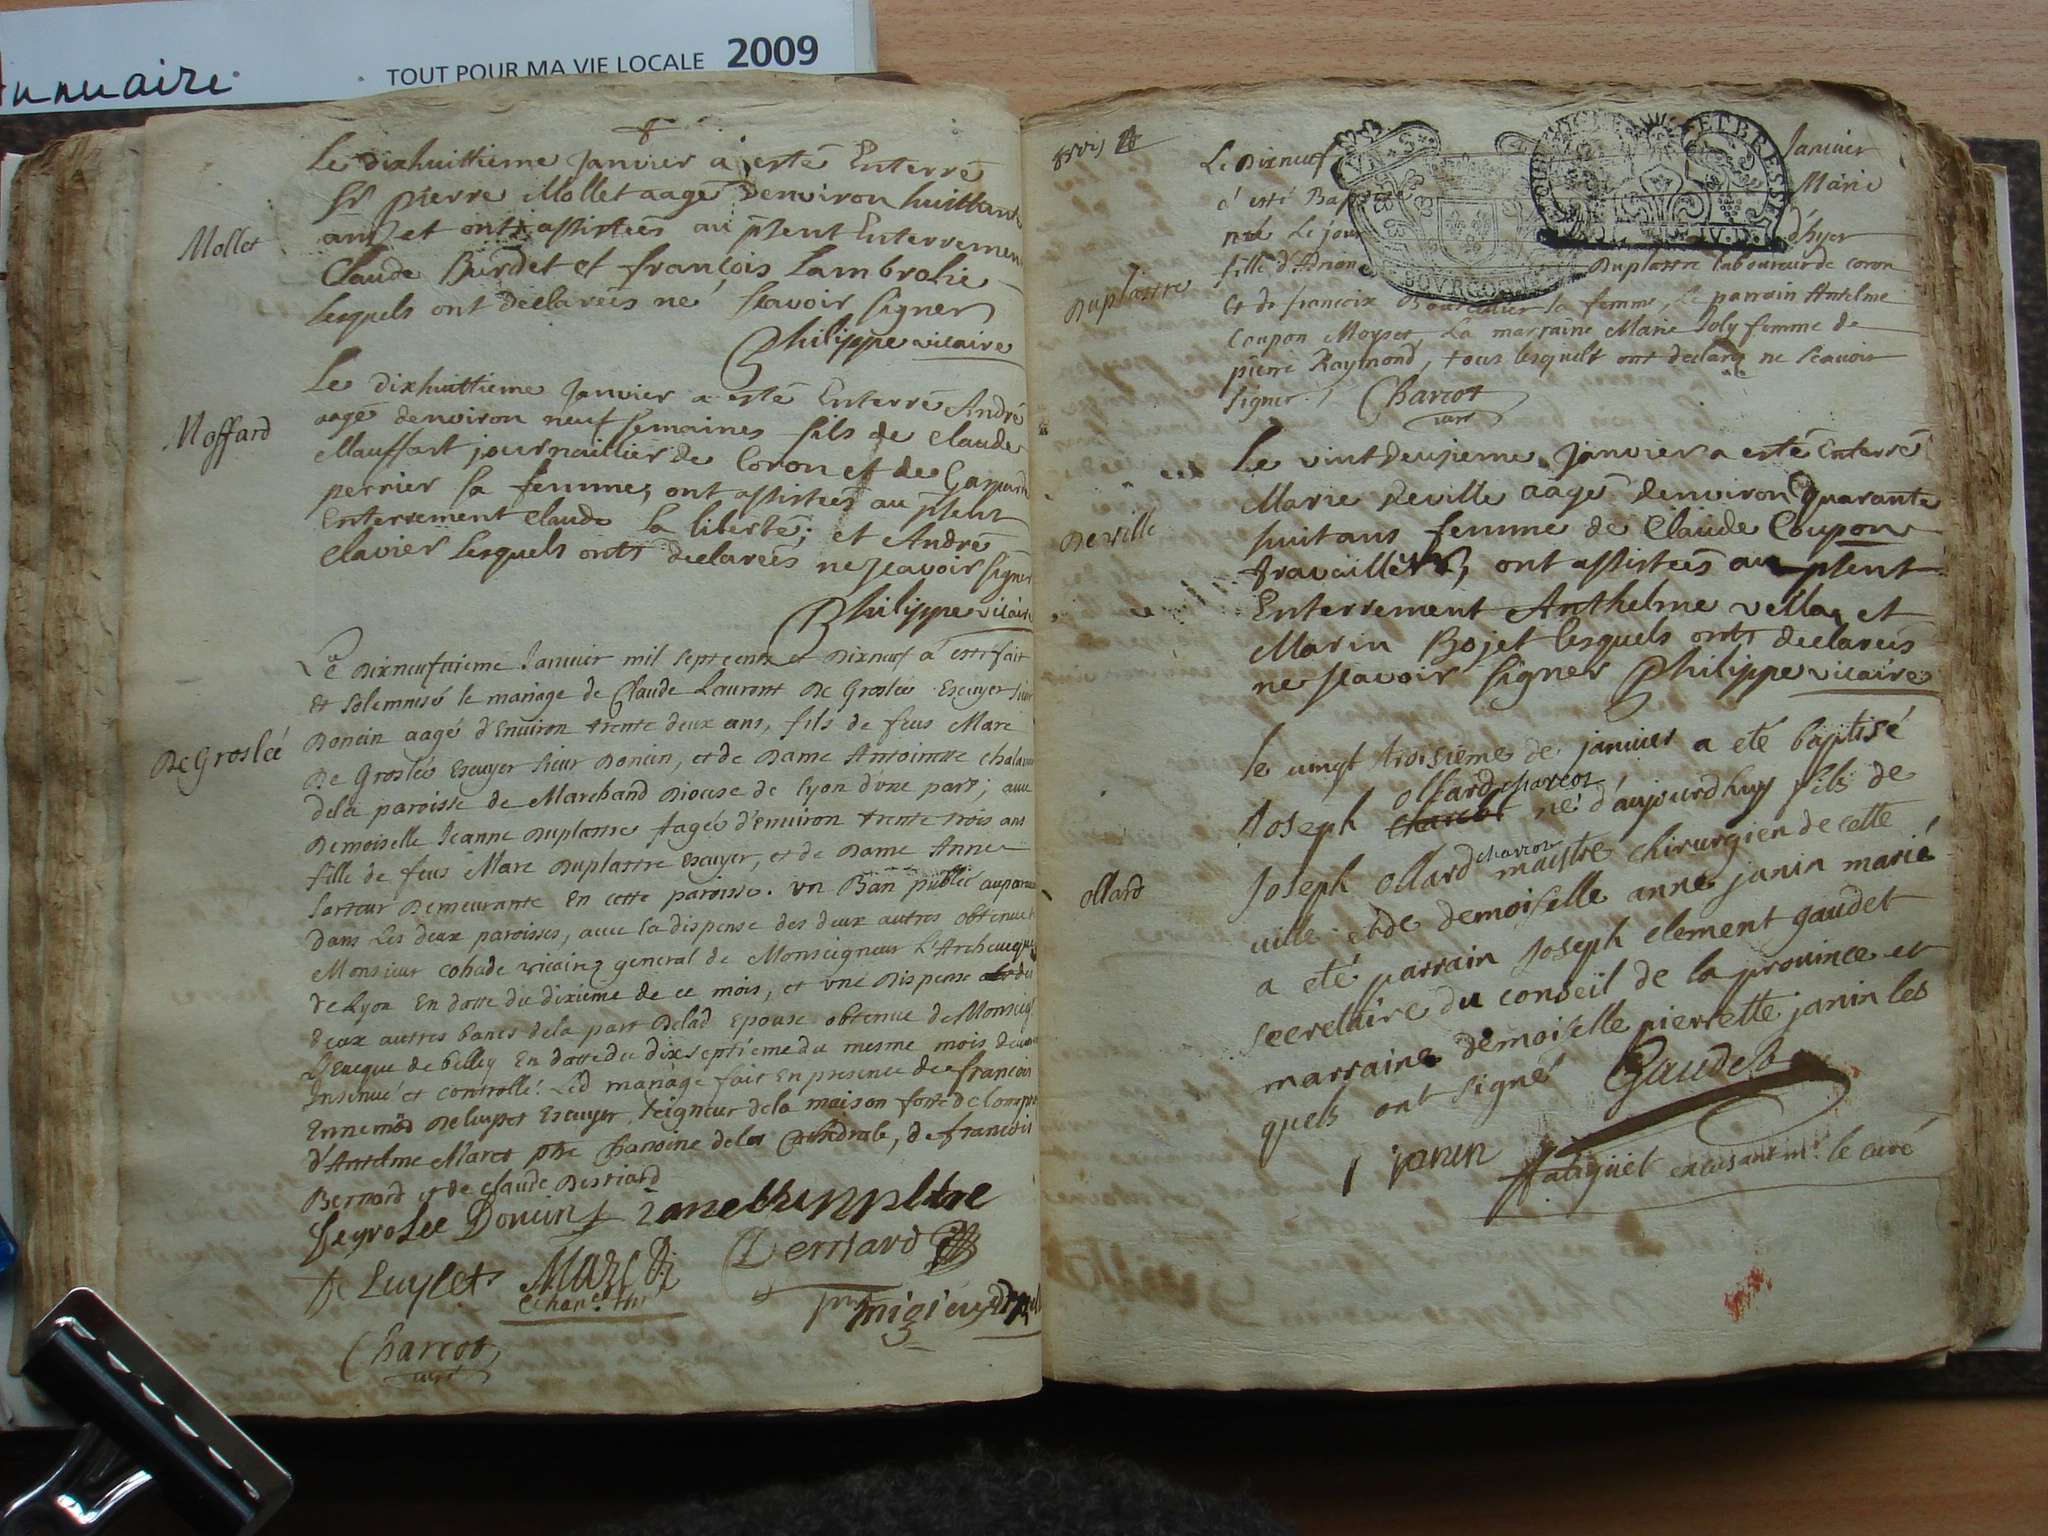 Annuaire
TOUT POUR MA VIE LOCALE 2009
Le dixhuittieme Janvier a esté Enterré
Sr pierre Mollet aagé denviron huittante
Mollet
ans et ont assistées au pñent Enterrement
Claude Burdet et françois Lambrolie
lesquels ont declarées ne scavoir signer
Philippe vicaire
Le dixhuittieme Janvier a esté Enterré André
Moffard
aagé denviron neuf semaines fils de claude
Mauffart journaillier de Coron et de Gasparde
perrier sa femme, ont assistées au pñent
Enterrement claude la liberté, et André
clavier lesquels onts declarées ne scavoir signer
Philippe vicaire
Le Dixneufvieme Janvier mil septcents et Dixneuf a esté fait
Et solemnisé le mariage de Claude Laurent De Groslée Escuyer sieur
Doncin aagé d'Environ trente deux ans, fils de feus Marc
De Groslée
De Groslée Escuyer sieur Doncin, et de Dame Antoinette
dela paroisse de Marchand Diocese de Lyon d'une part; avec
Demoiselle Jeanne Duplastre aagée d'Environ trente trois ans
fille de feus Marc Duplastre Escuyer, et de Dame Anne
Sarteur Demeurante En cette paroisse. un Ban publié auparavant
dans Les deux paroisses, avec la dispense des deux autres obtenue de
Monsieur cohade vicaire general de Monseigneur L'Archevesque
de Lyon En datte du dixieme de ce mois, et une Dispense des
deux autres bancs dela part Delad Epouse obtenue de Monseigr
L'Evêque de belley En datte du dixseptieme du mesme mois
Insinué et controllé. Led mariage fait En presence de françois
Ennemöd Deluyset Escuyer, seigneur dela maison forte de
d'Antelme Maret ptre Chanoine dela Cathedrale, de françois
Bernard et de claude Destiard
Degroslee Doncin Jane duplatre
De Luyset Maret Bernard
Charcot
curé
Le Dixneuf Janvier
a esté Bap Marie
née Le jour d'hyer
Duplastre
fille d'Anone Duplastre laboureur de coron
BOURGOGNE ET BRESSE
Et de françoise sa femme, Le parrain Antelme
Coupon Moyset, La marraine Marie Joly femme de
pierre Raymond, tous lesquels ont declaré ne scavoir
signer. Charcot
curé
Le vint deuxieme Janvier a esté Enterré
Marie Deville aagé denviron quarante
Deville
huit ans femme de Claude Coupon
travailleur, ont assistées au pñent
Enterrement Anthelme vella et
Marin Bojet lesquels onts declarées
ne scavoir signer Philippe vicaire
le vingt troisieme de janvier a eté baptisé
ollard charcot
Joseph charcot né d'aujourd'huy fils de
charcot
Joseph ollard maistre chirurgien de cette
ollard
ville et de demoiselle anne janin marié
a eté parrain Joseph clement gaudet
secretaire du conseil de la province et
marraine demoiselle pierrette janin les
quels ont signé Gaudet
janin
en absant mr. le curé